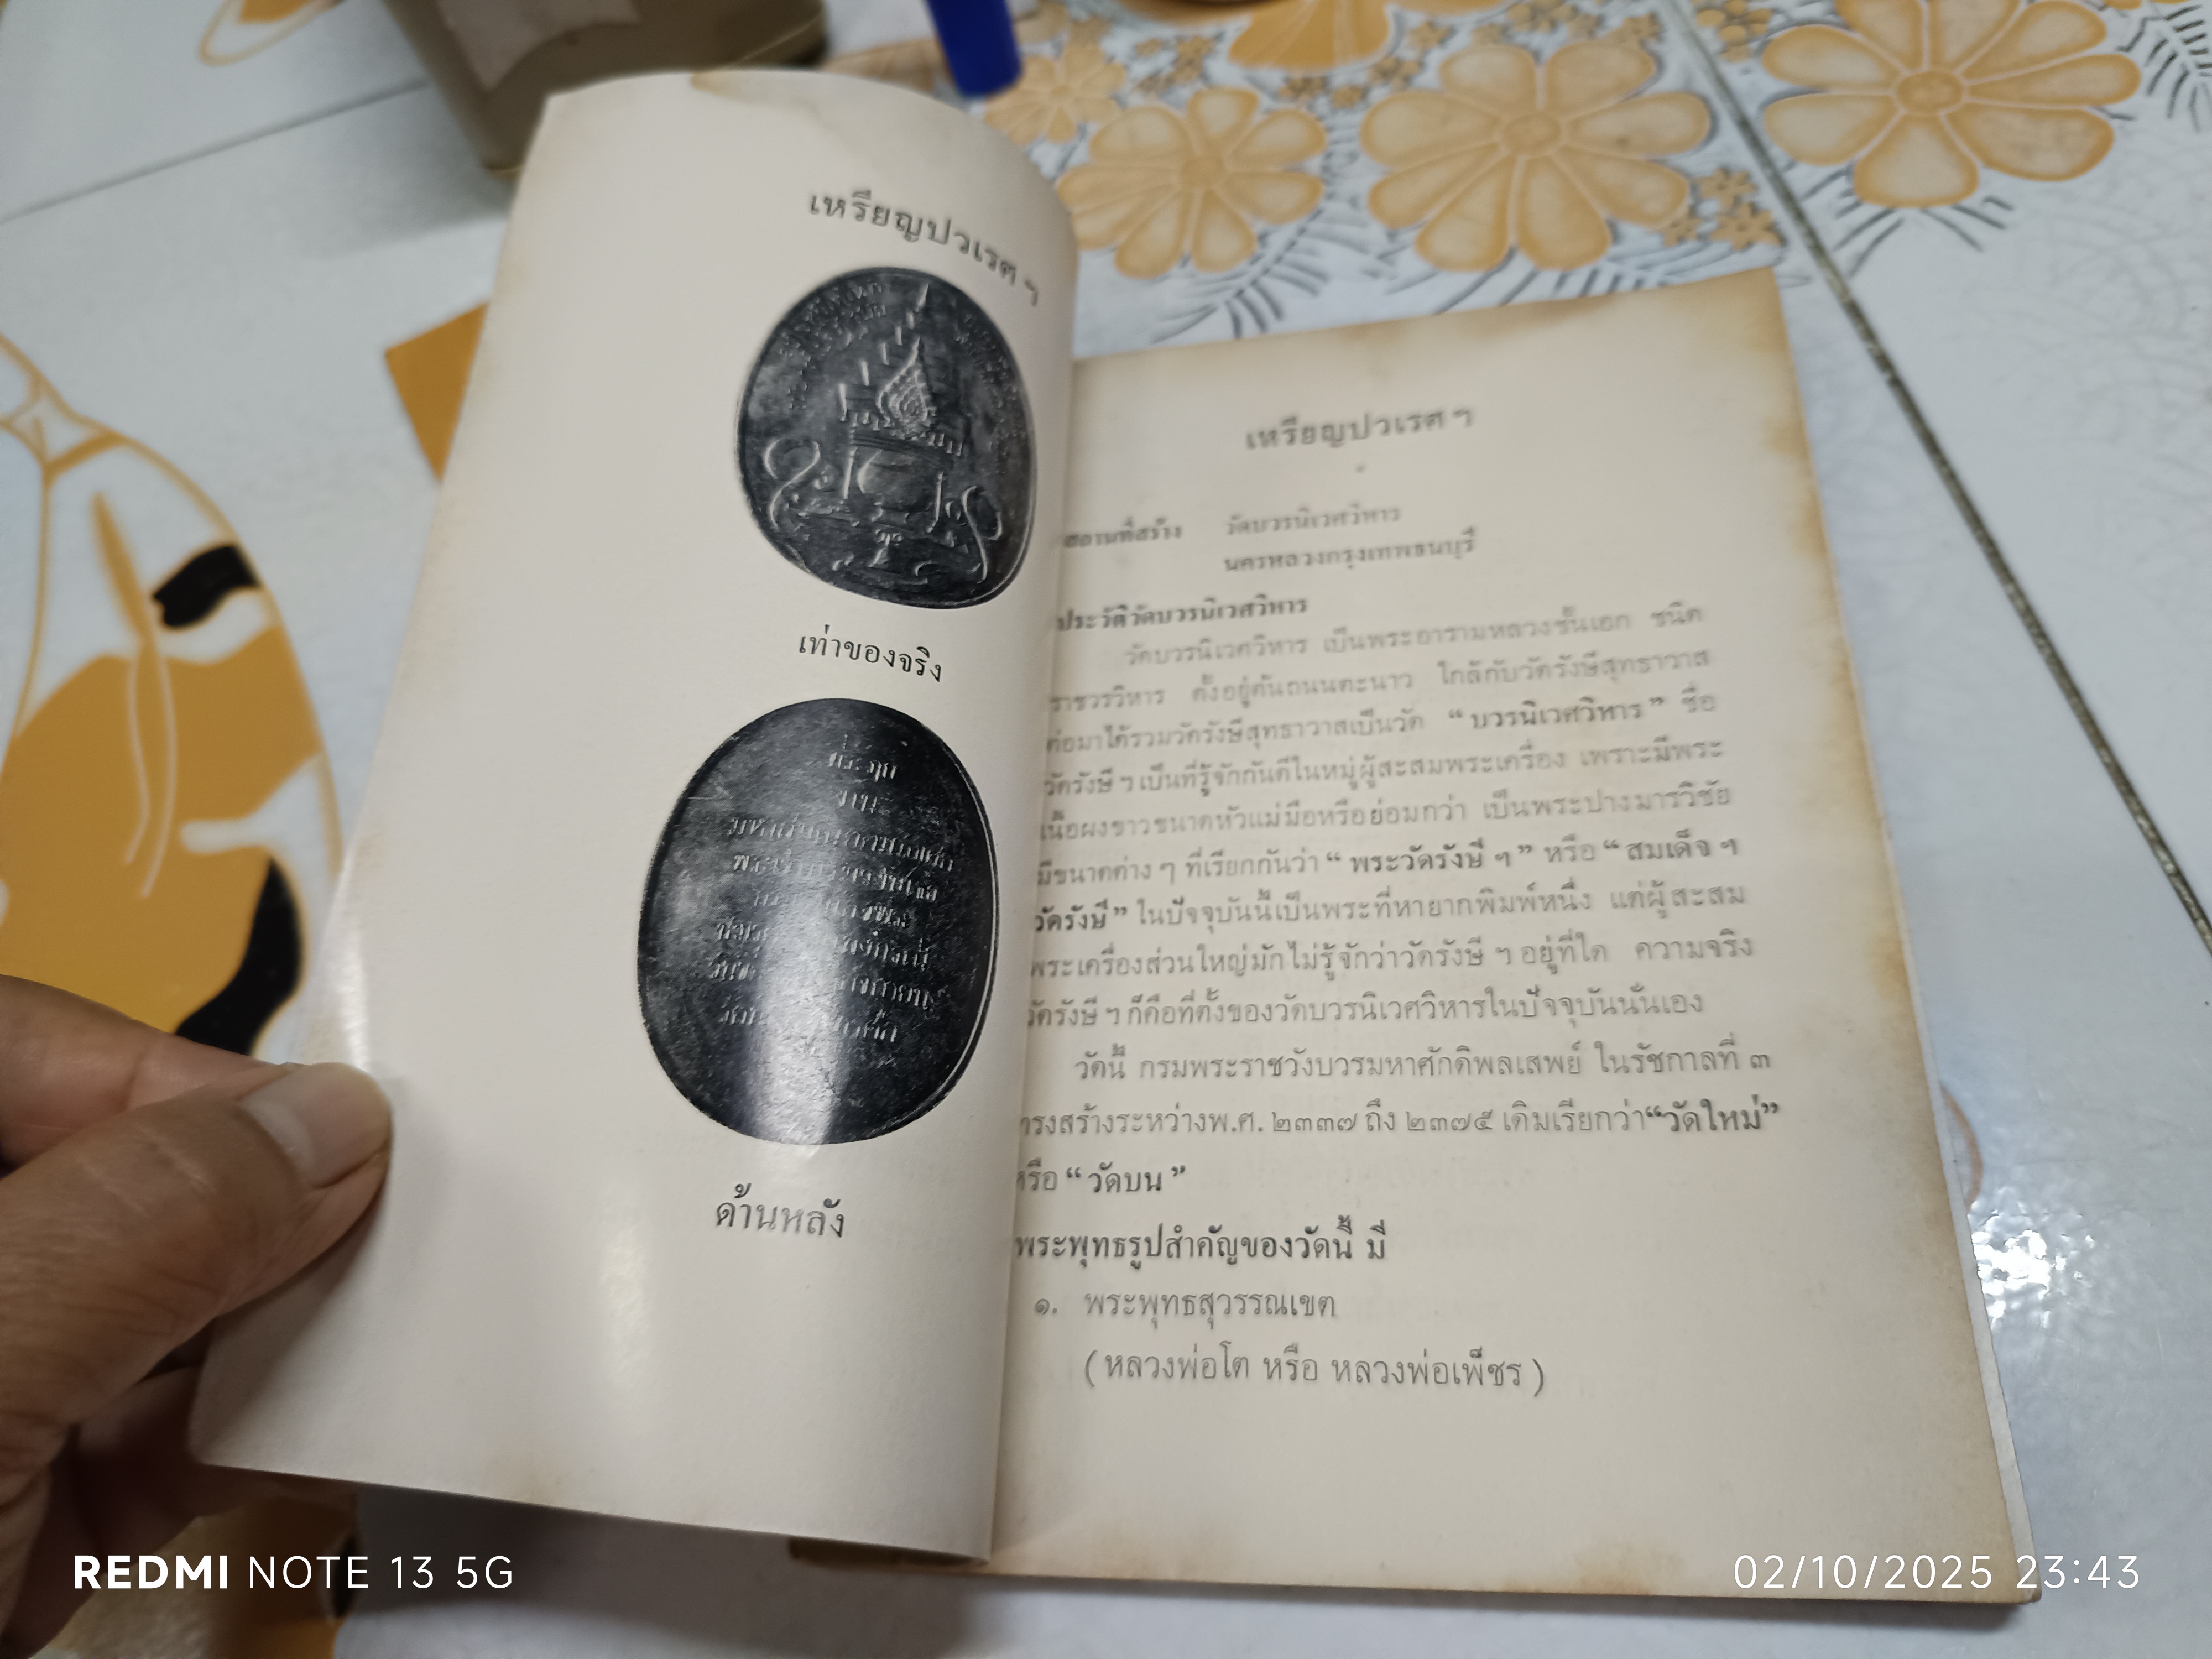 เหรียญปวเรศ ฯ
เท่าของจริง
ด้านหลัง
เหรียญปวเรศ ฯ
สถานที่สร้าง วัดบวรนิเวศวิหาร
นครหลวงกรุงเทพธนบุรี
ประวัติวัดบวรนิเวศวิหาร
วัดบวรนิเวศวิหาร เป็นพระอารามหลวงชั้นเอก ชนิด
ราชวรวิหาร ตั้งอยู่ต้นถนนตะนาว ใกล้กับวัดรังษีสุทธาวาส
ต่อมาได้รวมวัดรังษีสุทธาวาสเป็นวัด “บวรนิเวศวิหาร” ชื่อ
วัดรังษี ฯ เป็นที่รู้จักกันดีในหมู่ผู้สะสมพระเครื่อง เพราะมีพระ
เนื้อผงขาวขนาดหัวแม่มือหรือย่อมกว่า เป็นพระปางมารวิชัย
มีขนาดต่าง ๆ ที่เรียกกันว่า “พระวัดรังษี ฯ” หรือ “สมเด็จ ฯ
วัดรังษี” ในปัจจุบันนี้เป็นพระที่หายากพิมพ์หนึ่ง แต่ผู้สะสม
พระเครื่องส่วนใหญ่มักไม่รู้จักว่าวัดรังษี ฯ อยู่ที่ใด ความจริง
วัดรังษี ฯ ก็คือที่ตั้งของวัดบวรนิเวศวิหารในปัจจุบันนั่นเอง
วัดนี้ กรมพระราชวังบวรมหาศักดิพลเสพย์ ในรัชกาลที่ ๓
ทรงสร้างระหว่างพ.ศ. ๒๓๓๗ ถึง ๒๓๗๕ เดิมเรียกว่า“วัดใหม่”
หรือ “วัดบน”
พระพุทธรูปสำคัญของวัดนี้ มี
๑. พระพุทธสุวรรณเขต
(หลวงพ่อโต หรือ หลวงพ่อเพ็ชร)
REDMI NOTE 13 5G
02/10/2025 23:43